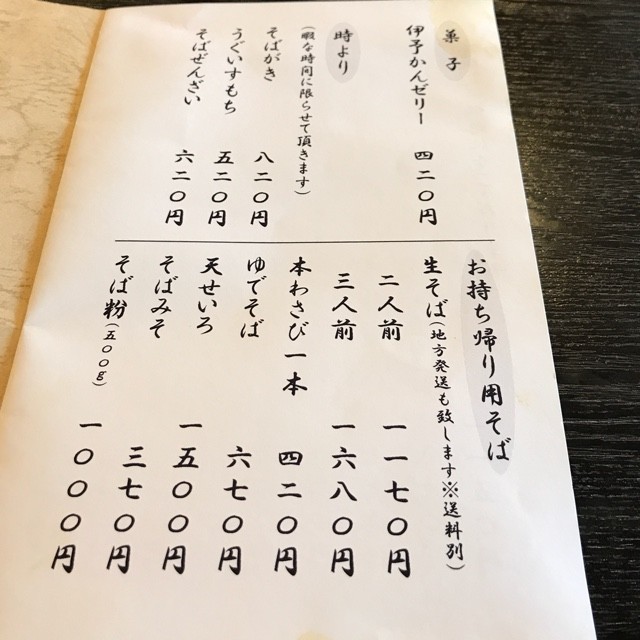 菓子
伊予かんゼリー 四二〇円
時より
(暇な時間に限らせて頂きます)
そばがき 八二〇円
うぐいすもち 五二〇円
そばぜんざい 六二〇円
お持ち帰り用そば
生そば(地方発送も致します※送料別)
二人前 一一七〇円
三人前 一六八〇円
本わさび一本 四二〇円
ゆでそば 六七〇円
天せいろ 一五〇〇円
そばみそ 三七〇円
そば粉(五〇〇g) 一〇〇〇円